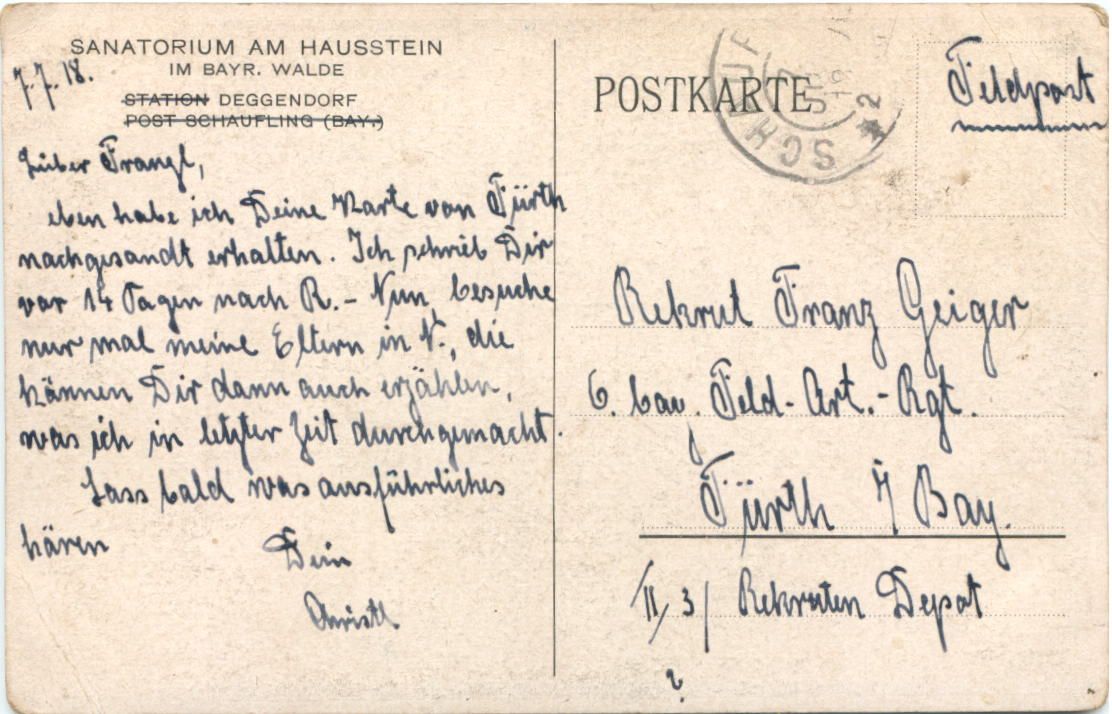 SANATORIUM AM HAUSSTEIN
IM BAYR. WALDE
7.7.18.
STATION DEGGENDORF
POST SCHAUFLING (BAY.)
Lieber Franzl,
eben habe ich Deine Karte von Fürth
nachgesandt erhalten. Ich schrieb Dir
vor 14 Tagen nach R. - Nun besuche
nur mal meine Eltern in N., die
können Dir dann auch erzählen,
was ich in letzter Zeit durchgemacht.
Lass bald was ausführliches
hören
Dein
Christl
POSTKARTE
SCHAUF
2
Feldpost
Rekrut Franz Geiger
6. bay. Feld-Art.-Rgt.
Fürth i/ Bay.
II, 3/ Rekruten Depot